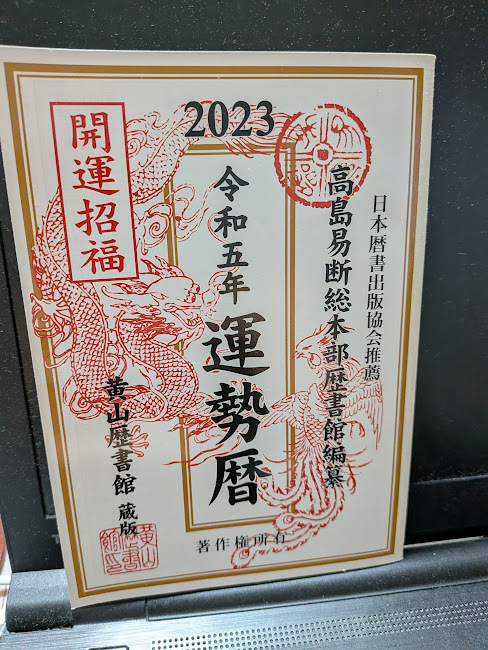 2023
日本暦書出版協会推薦
高島易断総本部歴書館編纂
令和五年 運勢暦
開運招福
黄山歴書館 蔵版
著作権所有